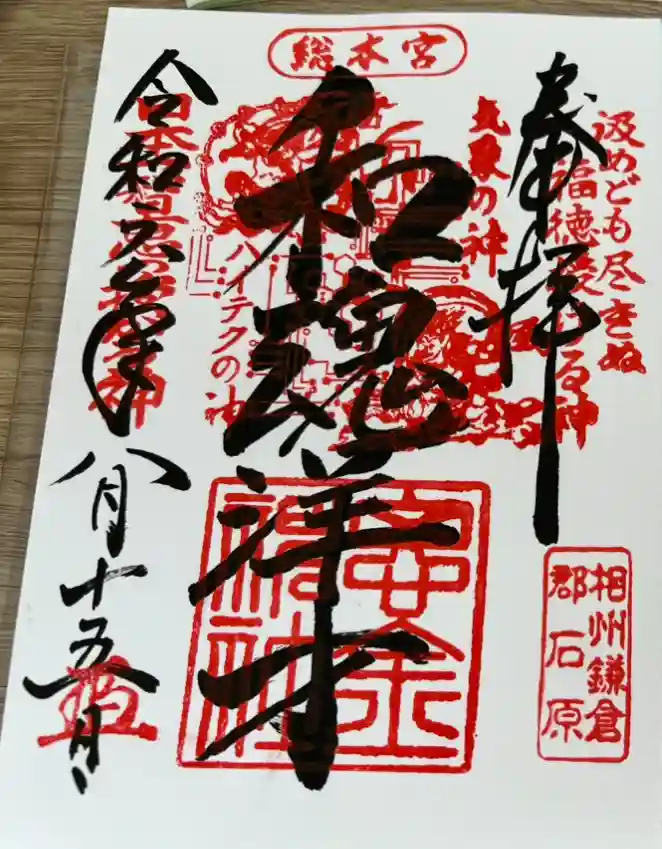 総本宮
奉拝
汲めども尽きぬ
福徳授ける神
気象の神
和魂洋才
ハイテクの神
令和六年
八月十五日
相州鎌倉
郡石原